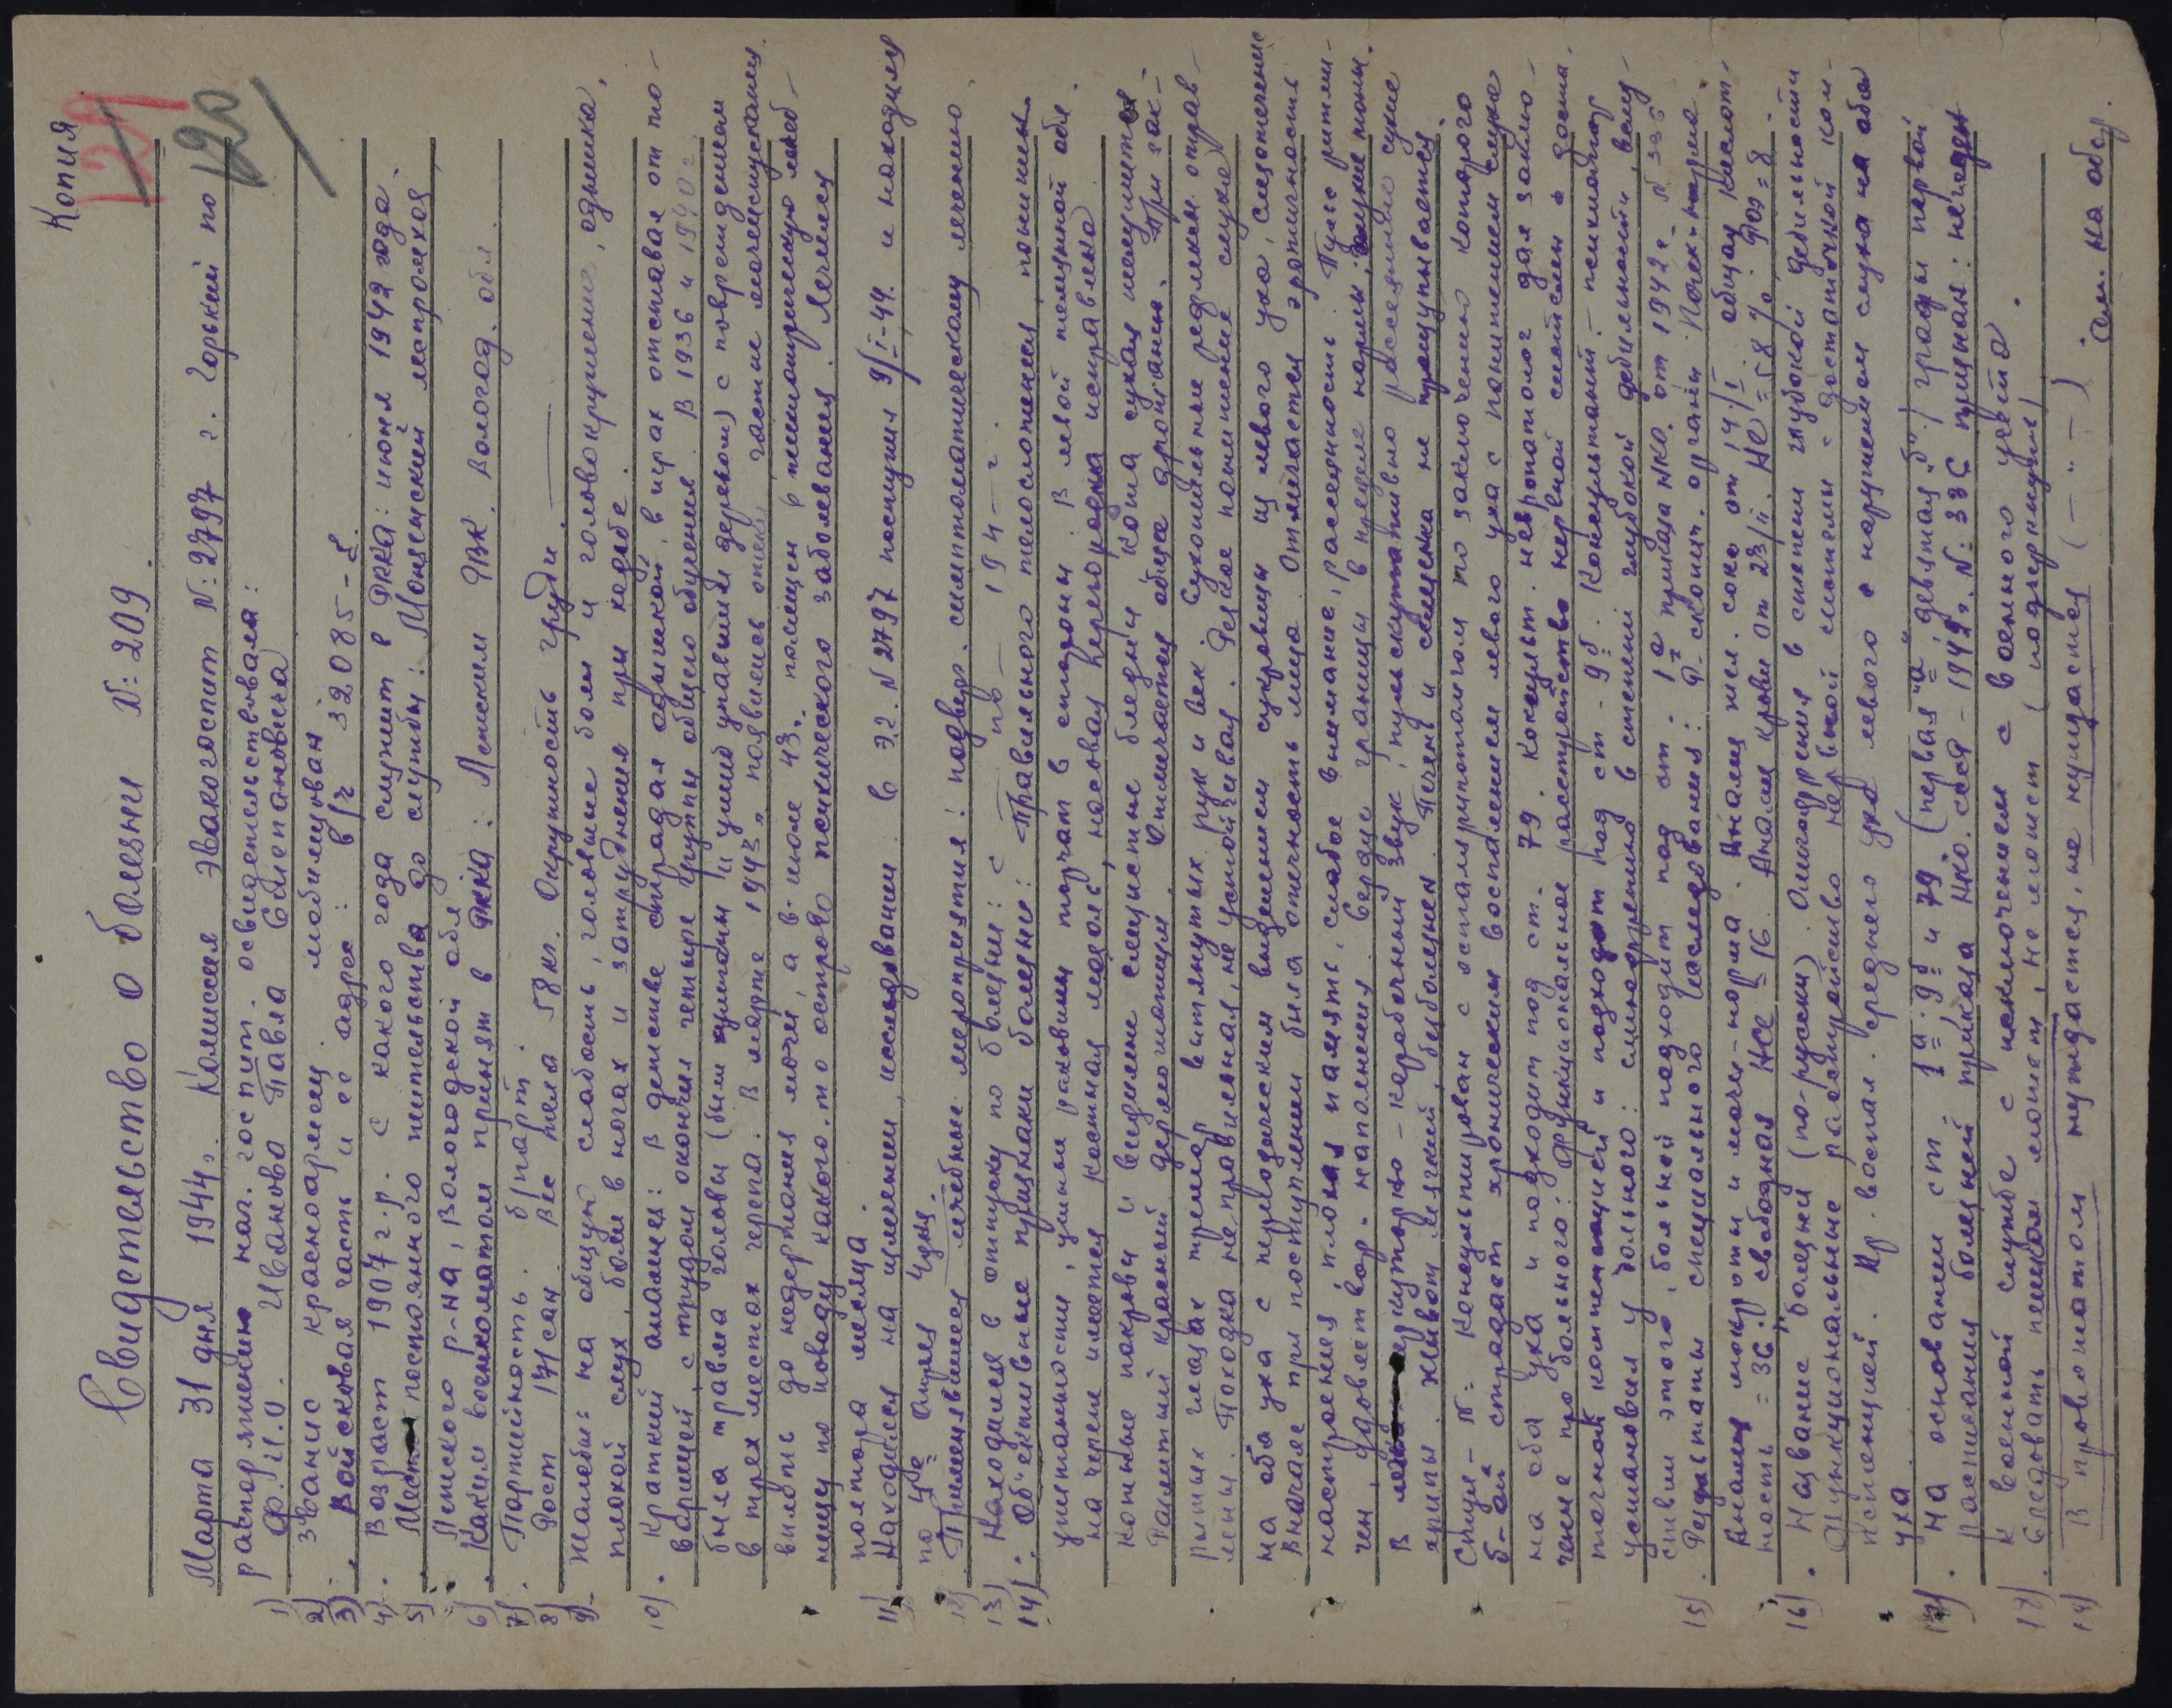 Копия
121
120
Свидетельство о болезни №: 209.
Марта 31 дня 1944 г. Комиссия эвакогоспит №: 2797 г. Горький по
распоряжению нач. госпит. освидетельствовала:
1) Ф.И.О. Иванова Павла Степановича
2) звание красноармеец. мобилизован.
3) Войсковая часть и ее адрес: в/ч 32085-
4) Возраст 1907 г.р. с какого года служит в РККА: июня 1942 года.
5) Место постоянного жительства до службы: Монземский леспромхоз,
Ленского р-на, Вологодской обл
6) Каким военкоматом призван в РККА: Ленским РВК. Вологод. обл.
7) Партийность. б/парт.
8) Рост 171 сан. Вес тела 58 кг. Окружность груди.
9) Жалобы: на общую слабость, головные боли и головокружение, одышка,
плохой слух, боли в ногах и затруднения при ходьбе.
10) Краткий анамнез: В детстве страдал одышкой, в играх отставал от то-
варищей, с трудом окончил четыре группы общего обучения. В 1936 и 1940 г.
была травма головы (были ушибы упавшим деревом) с повреждением
в трех местах черепа. В марте 1943 г. появились отеки, частые мочеиспускания,
вплоть до недержания мочи, а в июле 43 г. помещен в психиатрическую лечеб-
ницу по поводу какого-то острого психического заболевания. Лечился
полтора месяца.
11) Находился на излечении, исследовании в э.г. №2797 поступил 9/I-44. и находился
по 4ое Апреля
12) Применявшиеся лечебные мероприятия: подвер. симптоматическому лечению.
13) Находился в отпуску по болезни: с — по — 194— г.
14) Об'ективные признаки болезни: Правильного телосложения, понижен.
упитанности, ушные раковины торчат в стороны. В левой теменной обл.
на черепе имеется костная мозоль, носовая перегородка искривлена.
Кожные покровы и видимые слизистые бледны Кожа сухая шелушится
Разлитый красный дермографизм. Отмечается общее дрожание. При зак-
рытых глазах тремор вытянутых рук и век. Сухожильные рефлексы оправ-
лены. Походка неправильная, не устойчивая. Резкое понижение слуха
на оба уха с периодическим выделением сукровицы из левого уха, слезотечение
Вначале при поступлении была отечность лица. Отмечается эротичность
настроения, плохая память, слабое внимание, рассеянность. Пульс ритми-
чен, удовлетвор. наполнения. Сердце границы в пределе нормы, глухие тоны.
В легких перкуторно-коробочный звук, аускультативно рассеянные сухие
хрипы. Живот мягкий, безболезнен. Печень и селезенка не прощупывается.
Спец-№: Консультирован с отоларингологом по заключению которого
б-ой страдает хроническим воспалением левого уха с понижением слуха
на оба уха и подходит под ст. 79. Консульт. невропатолог дал заклю-
чение про больного: функциональное расстройство нервной системы в доста-
точной компенсацией и подходит под ст-9б. Консультант-психиатор
установил у больного: слабоумие в степени глубокой дебильности, вслед-
ствии этого, больной подходит под ст-1а приказа НКО. от 1942 г. № 336
15) Результаты специального исследования: Р-скопия. органы гр. клет. норма.
Анализ мокроты и мочи-норма. Анализ жел. сока от 14/I общая кислот-
ность = 36. свободная HCl = 16 Анализ крови от 23/I. Не = 58 % РОЭ = 8
16) Название болезни (по-русски) Олигофрения в степени глубокой дебильности
Функциональные расстройство нервной системы с достаточной ком-
пенсацией. Хр. воспал. среднего уха левого с нарушением слуха на оба
уха.
17) На основании ст. 1а, 9б и 79 (первая "а", девятая "б") графы первой
расписания болезней приказа НКО. ссср-1942 г. №: 336 признан: не годен
к военной службе с исключением с военного учета.
18) Следовать пешком может, не может (подчеркнуть)
19) В провожатом нуждается, не нуждается (— " —)
См. на обор.